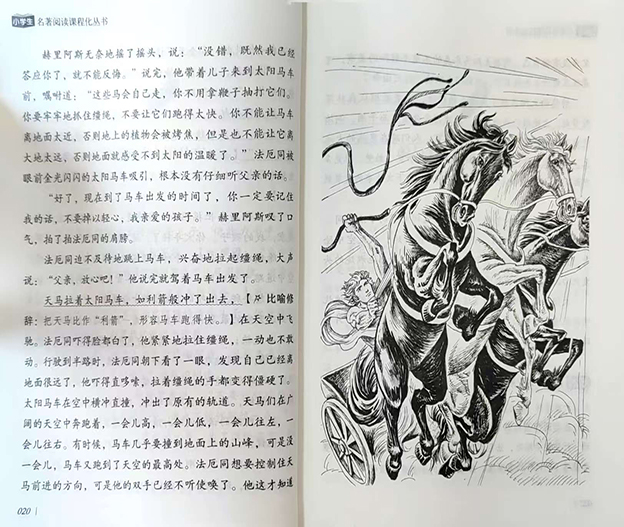 小学生 名著阅读课程化丛书
赫里阿斯无奈地摇了摇头，说：“没错，既然我已经
答应你了，就不能反悔。”说完，他带着儿子来到太阳马车
前，嘱咐道：“这些马会自己走，你不用拿鞭子抽打它们。
你要牢牢地抓住缰绳，不要让它们跑得太快。你不能让马车
离地面太近，否则地上的植物会被烤焦，但是也不能让它离
大地太远，否则地面就感受不到太阳的温暖了。”法厄同被
眼前金光闪闪的太阳马车吸引，根本没有仔细听父亲的话。
“好了，现在到了马车出发的时间了，你一定要记住
我的话，不要掉以轻心，我亲爱的孩子。”赫里阿斯叹了口
气，拍了拍法厄同的肩膀。
法厄同迫不及待地跳上马车，兴奋地拉起缰绳，大声
说：“父亲，放心吧！”他说完就驾着马车出发了。
天马拉着太阳马车，如利箭般冲了出去，【比喻修
辞：把天马比作“利箭”，形容马车跑得快。】在天空中飞
驰。法厄同吓得脸都白了，他紧紧地拉住缰绳，一动也不敢
动。行驶到半路时，法厄同朝下看了一眼，发现自己已经离
地面很远了，他吓得直哆嗦，拉着缰绳的手都变得僵硬了。
太阳马车在空中横冲直撞，冲出了原有的轨道。天马们在广
阔的天空中奔跑着，一会儿高，一会儿低，一会儿往左，一
会儿往右。有时候，马车几乎要撞到地面上的山峰，可是没
一会儿，马车又跑到了天空的最高处。法厄同想要控制住天
马前进的方向，可是他的双手已经不听使唤了。他这才知道
020